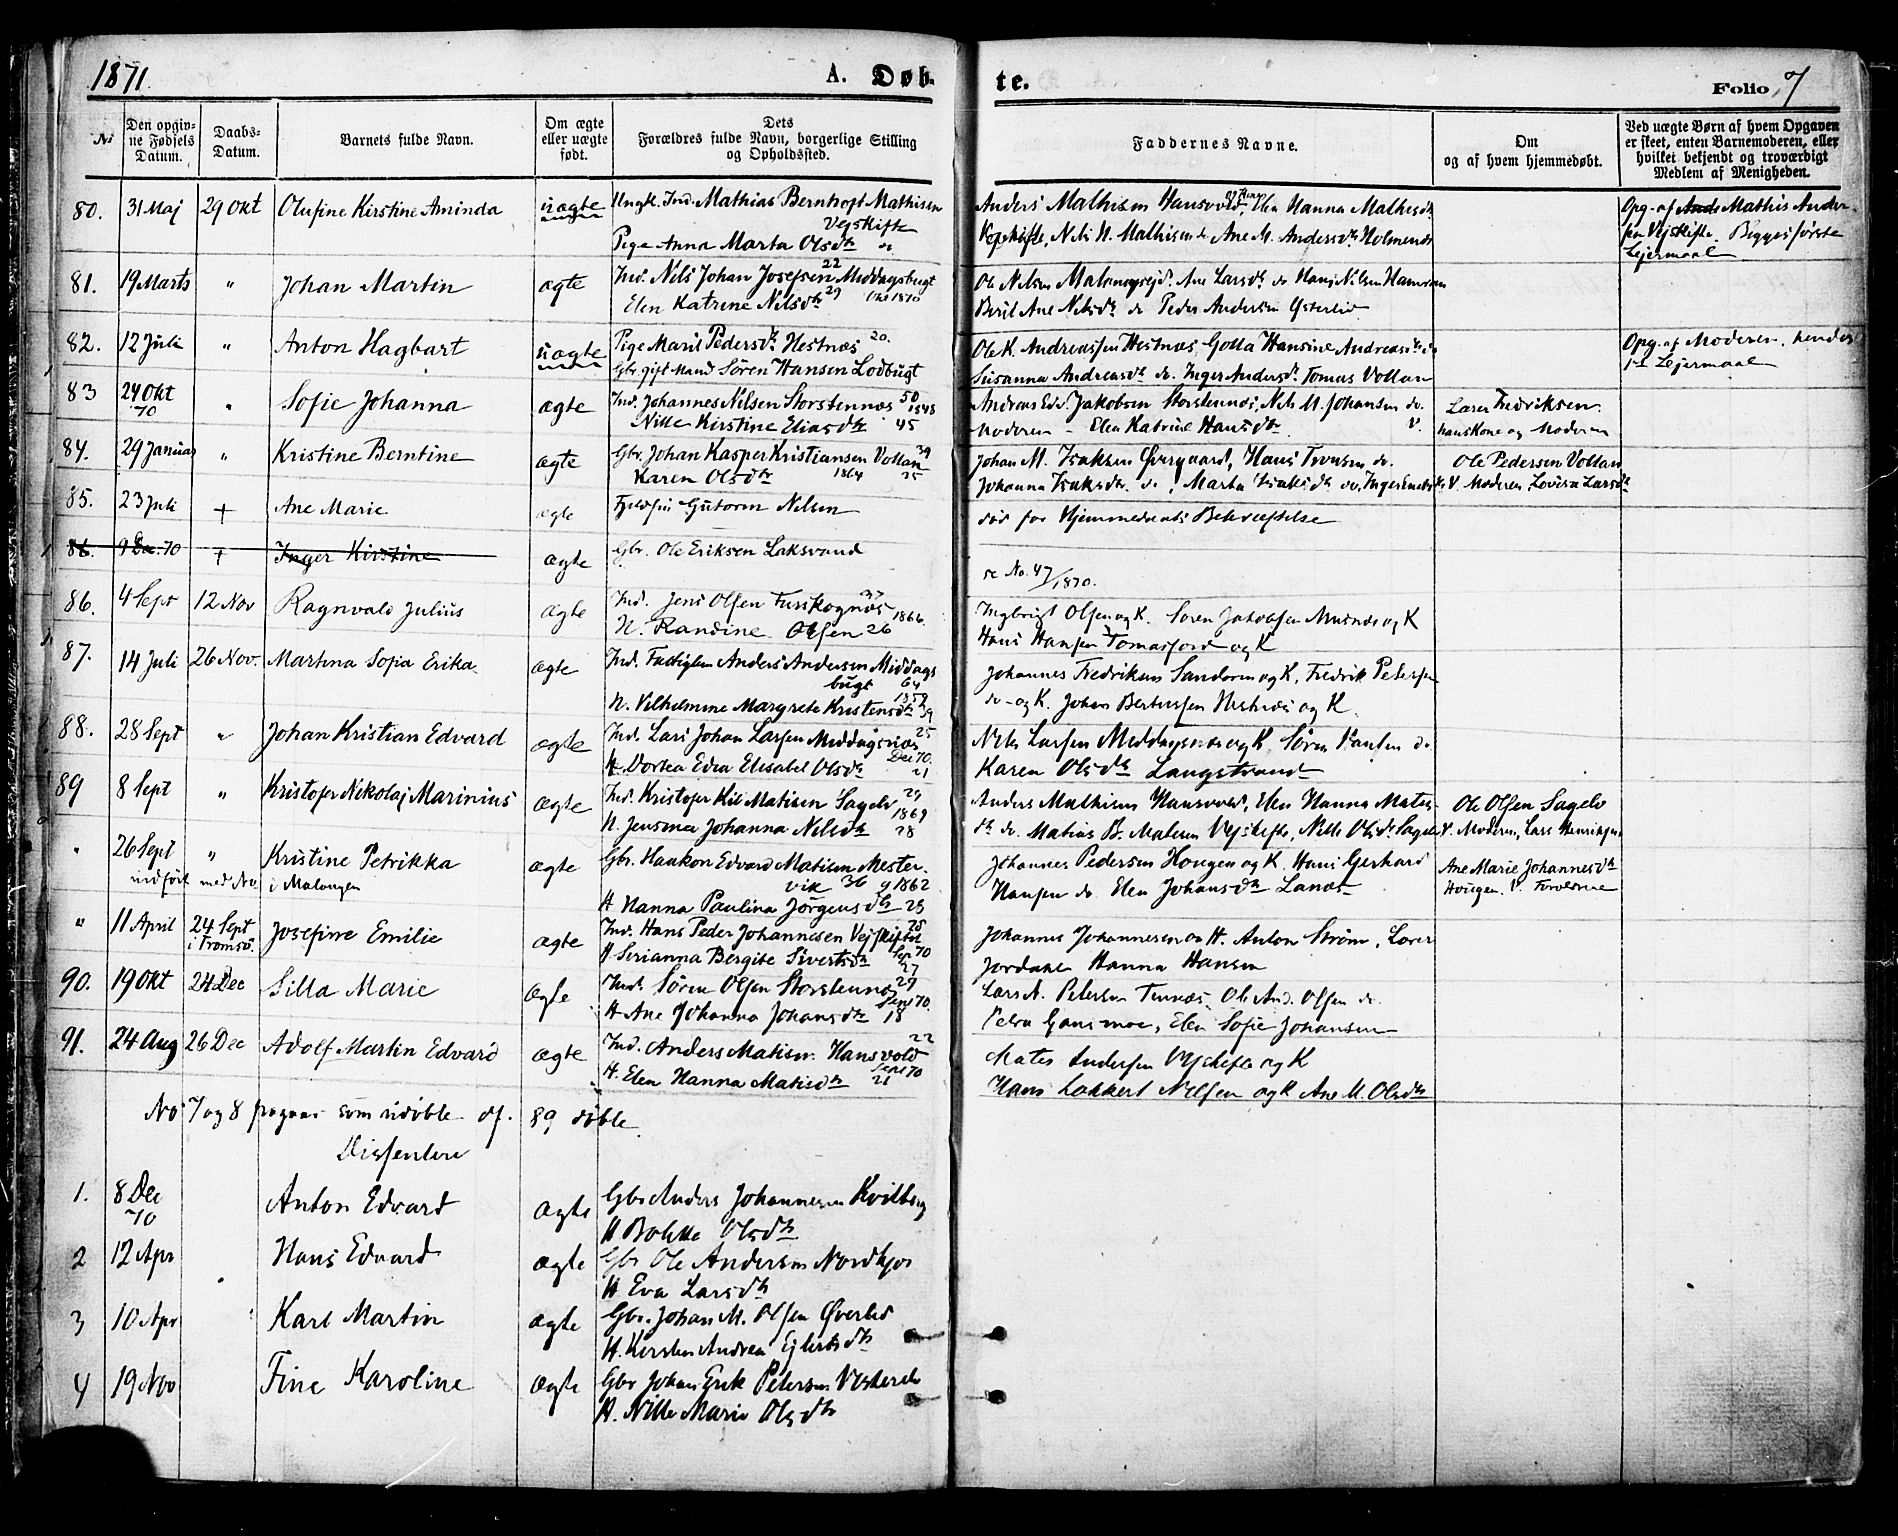 1871.
A. Døb-
te.
Folio 7
No
Den opgiv-
ne Fødsels
Datum.
Daabs-
Datum.
Barnets fulde Navn.
Om ægte
eller uægte
født.
Dets
Forældres fulde Navn, borgerlige Stilling
og Opholdssted.
Faddernes Navne.
Om
og af hvem hjemmedøbt.
Ved uægte Børn af hvem Opgaven
er skeet, enten Barnemoderen, eller
hvilket bekjendt og troværdigt
Medlem af Menigheden.
80. 31 Maj 29 Okt Olufine Kirstine Aminda uægte Ungk. Ind. Mathias Bernhoft Mathisen
Vejskifte
Pige Anna Marta Olsdtr do
Anders Mathisen Hansvold, Elen Hanna Mathisdtr
Vejskifte, Nels N. Mathisen do Ane M. Andersdtr Holmenes
Opg. af Mathis Ander-
sen Vejskifte. Begges første
Lejermaal
81. 19 Marts " Johan Martin ægte Ind. Nils Johan Josefsen 22 Middagsbugt
Elen Katrine Nelsdtr 29 Okt 1870
Ole Nelsen Ane Larsdtr do Hans Nilsen
Beril Ane Nelsdtr do Peder Andersen Østerlid
82. 12 Juli " Anton Hagbart uægte Pige Maril Pedersdtr Hestnæs 20.
Gbr. gift Mand Søren Hansen Lodbugt
Ole K. Andreassen Hestnæs, Golla Hansine Andreasdtr do
Susanna Andreasdtr do. Inger Andersdtr Tomas Vollan
Opg. af Moderen, hendes
1ste Lejermaal
83 24 Okt " Sofie Johanna ægte Ind. Johannes Nilsen Storstennæs 50
70 1848
Nille Kirstine Eliasdtr 45
Andreas Edv. Jakobsen Storstennæs, Nels M. Johansen do.
Moderen - Elen Katrine Hansdtr
Lærer Fredriksen.
hans Kone og Moderen
84. 29 Januar " Kristine Berntine ægte Gbr. Johan Kasper Kristiansen Vollan 39
Karen Olsdtr 1864 25
Johan M. Isaksen Øvergaard, Hans Tronsen do.
Johanna Isaksdtr do, Marta Isaksdtr do,
Ole Pedersen Vollan
V. Moderen, Lovisa Larsdtr
85. 23 Juli + Ane Marie ægte Gutorm Nilsen
død før Hjemmedaabs Bekræftelse
86. 9 Dec. 70 + Inger Kirstine ægte Gbr. Ole Eriksen Laksvand
se No. 47/1870.
86. 4 Sept 12 Nov Ragnvald Julius ægte Ind. Jens Olsen Furskognæs
1866.
H. Randine Olsen 26
Ingbrigt Olsen og K. Søren Jakobsen og K
Hans Hansen Tomasjord og K
87. 14 Juli 26 Nov. Martina Sofia Erika ægte Ind. Fattiglem Anders Andersen Middags
bugt 64
1859
H. Vilhelmine Margrete Kristensdtr 39
Johannes Fredriksen Sandøren og K, Fredrik Petersen
do og K. Johan Berteussen Hestnæs og K.
88. 28 Sept " Johan Kristian Edvard ægte Ind. Lars Johan Larsen Middagsnæs 25
Dec 70.
H Dortea Edea Elisabet Olsdtr 21
Nels Larsen Middagsnæs og K. Søren Hansen do.
Karen Olsdtr Langstrand
89 8 Sept " Kristofer Nikolaj Marinius ægte Ind. Kristofer Kil Matisen Sagelv 29
1869
H. Jensine Johanna Nelsdtr 28
Anders Mathisen Hansvold, Elen Hanna Matis-
dtr do. Matias B. Matisen Vejskifte, Nille Olsdtr Sagelv
Ole Olsen Sagelv
V. Moderen, Lars Henriksen
" 26 Sept " Kristine Petrikka ægte Gbr. Haakon Edvard Matisen Mester-
indført med No. i Malangen vik 36 g 1862
H Hanna Paulina Jørgensdtr 28
Johannes Pedersen Hougen og K. Hans Gerhard
Hansen do Elen Johansdtr Lanæs
Ane Marie Johannesdtr
Hougen. V. Forældrene
" 11 April 24 Sept Josefine Emilie ægte Ind. Hans Peder Johannesen Vejskifte 28
i Tromsø. Sep 70
H Serianna Bergite Sivertsdtr 27
Johannes Johannesen og H. Anton Strøm, Lærer
Jordahl Hanna Hansen
90. 19 Okt 24 Dec Silla Marie ægte Ind. Søren Olsen Storstennæs 29
Sept 70.
H Ane Johanna Johansdtr 18
Lars A. Petersen Tennæs, Ole And. Olsen do.
Petra Gausmoe, Elen Sofie Johansen
91. 24 Aug 26 Dec Adolf Martin Edvard ægte Ind. Anders Matisen Hansvold 22
Sept 70
H. Elen Hanna Matisdtr 21
Mates Andersen Vejskifte og K
Hans Lokkert Nilsen og K Ane M. Olsdtr
No 7 og 8 som udøbte. 89 døbte.
Dissentere
1. 8 Dec Anton Edvard ægte Gbr Anders Johannesen Kvitberg
70 H Bolette Olsdtr
2 12 Apr Hans Edvard ægte Gbr Ole Andersen Nordkjos
H Eva Larsdtr
3 10 Apr Karl Martin ægte Gbr. Johan M. Olsen Øverlid
H. Kirsten Andrea Eglertsdtr
4 19 Nov Tine Karoline ægte Gbr Johan Erik Petersen
H. Nille Marie Olsdtr